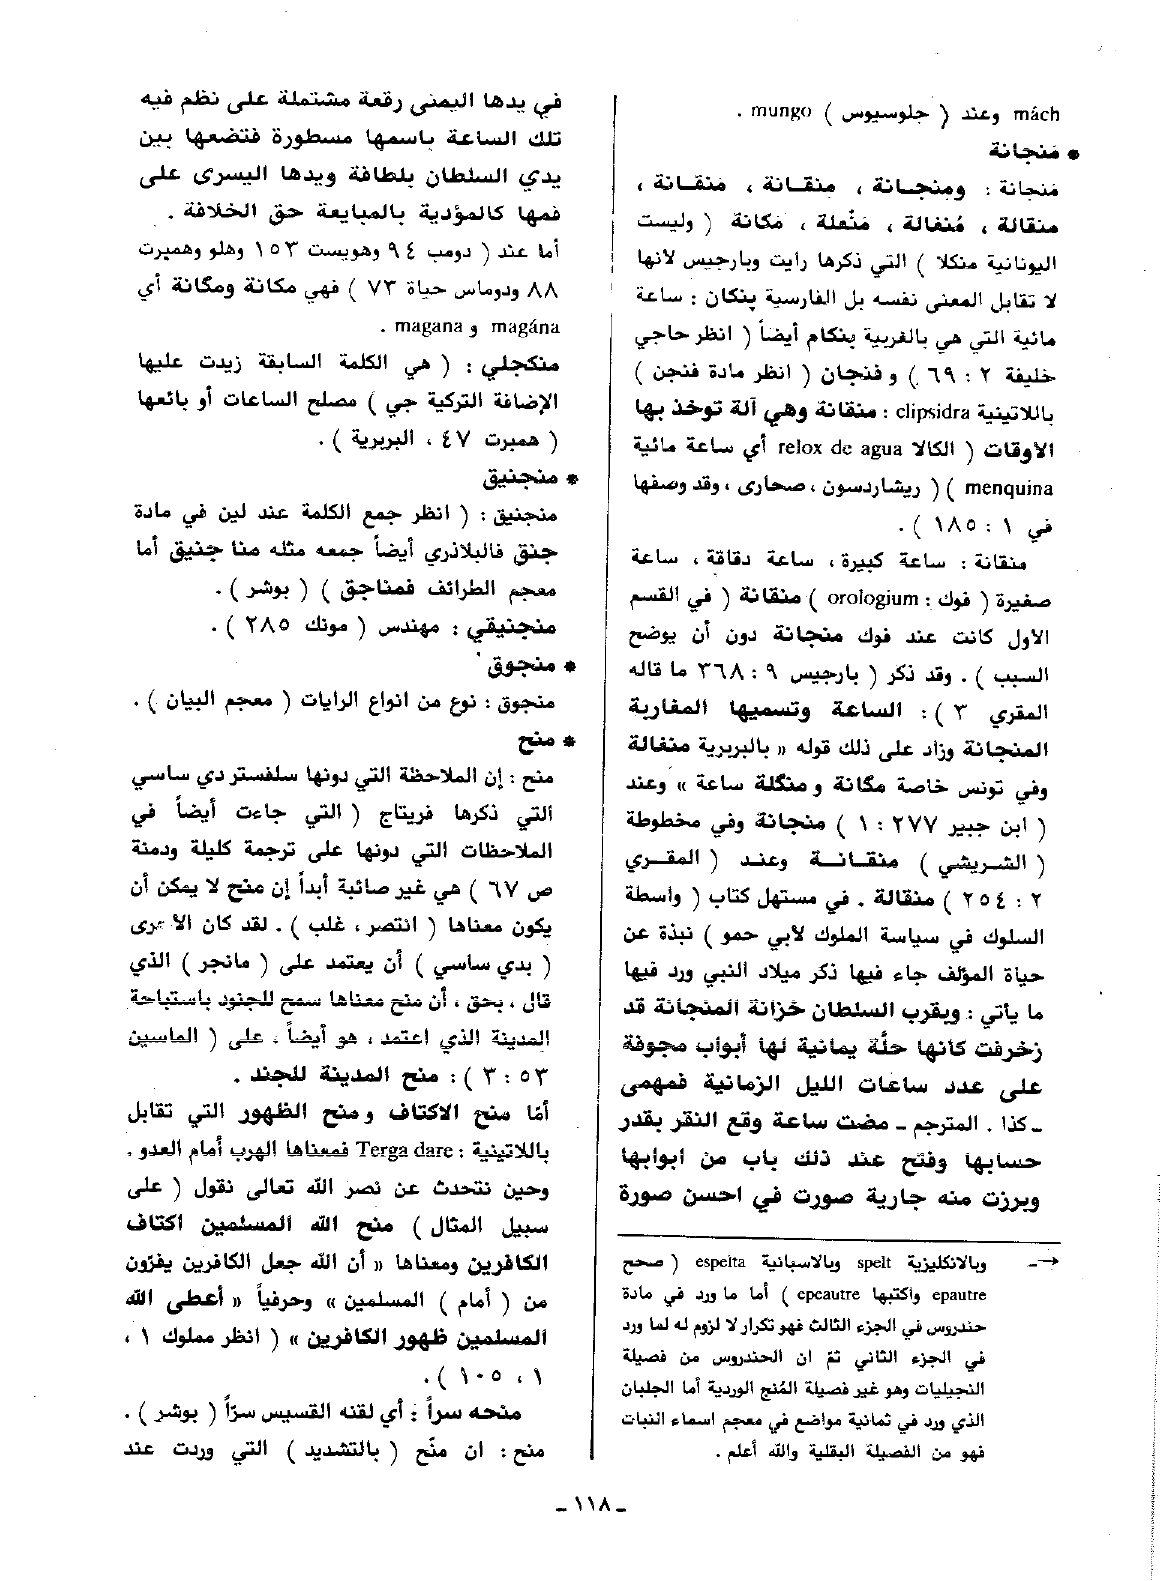 mách وعند ( جلوسيوس ) mungo .
* مَنجانة
مَنجانة : ومنجـانة ، منقـانة ، مَنقـانة ،
منقالة ، مُنفالة ، مَنْعلة ، مَكانة ( وليست
اليونانية منكلا ) التي ذكرها رايت وبارجيس لانها
لا تقابل المعنى نفسه بل الفارسية پنكان : ساعة
مائية التي هي بالعربية بنكام أيضاً ( انظر حاجي
خليفة ٢ : ٦٩ ) و فنجان ( انظر مادة فنجن )
باللاتينية clipsidra : منقانة وهي آلة توخذ بها
الأوقات ( الكالا relox de agua أي ساعة مائية
menquina ) ( ريشاردسون ، صحارى ، وقد وصفها
في ١ : ١٨٥ ) .
منقانة : ساعة كبيرة ، ساعة دقاقة ، ساعة
صغيرة ( فوك : orologium ) منقانة ( في القسم
الأول كانت عند فوك منجانة دون أن يوضح
السبب ) . وقد ذكر ( بارجيس ٩ : ٣٦٨ ما قاله
المقري ٣ ) : الساعة وتسميها المغاربة
المنجانة وزاد على ذلك قوله « بالبربرية منغالة
وفي تونس خاصة مكانة و منگلة ساعة » وعند
( ابن جبير ٢٧٧ : ١ ) منجانة وفي مخطوطة
( الشـريشي ) منقـانـة وعنـد ( المقـري
٢ : ٢٥٤ ) منقالة . في مستهل كتاب ( واسطة
السلوك في سياسة الملوك لأبي حمو ) نبذة عن
حياة المؤلف جاء فيها ذكر ميلاد النبي ورد فيها
ما يأتي : ويقرب السلطان خزانة المنجانة قد
زخرفت كانها حلّة يمانية لها أبواب مجوفة
على عدد ساعات الليل الزمانية فمهمى
ـ كذا . المترجم ـ مضت ساعة وقع النقر بقدر
حسابها وفتح عند ذلك باب من ابوابها
وبرزت منه جارية صورت في احسن صورة
→ وبالانكليزية spelt وبالاسبانية espelta ( صحح
epautre واكتبها epeautre ) أما ما ورد في مادة
خندروس في الجزء الثالث فهو تكرار لا لزوم له لما ورد
في الجزء الثاني ثم ان الخندروس من فصيلة
النجيليات وهو غير فصيلة المُنج الوردية أما الجلبان
الذي ورد في ثمانية مواضع في معجم اسماء النبات
فهو من الفصيلة البقلية والله أعلم .
في يدها اليمنى رقعة مشتملة على نظم فيه
تلك الساعة باسمها مسطورة فتضعها بين
يدي السلطان بلطافة ويدها اليسرى على
فمها كالمؤدية بالمبايعة حق الخلافة .
أما عند ( دومب ٩٤ وهويست ١٥٣ وهلو وهمبرت
٨٨ ودوماس حياة ٧٣ ) فهي مكانة ومگانة أي
magána و magana .
منكجلي : ( هي الكلمة السابقة زيدت عليها
الإضافة التركية جي ) مصلح الساعات أو بائعها
( همبرت ٤٧ ، البربرية ) .
* منجنيق
منجنيق : ( انظر جمع الكلمة عند لين في مادة
جنق فالبلاذري أيضاً جمعه مثله منا جنيق أما
معجم الطرائف فمناجق ) ( بوشر ) .
منجنيقي : مهندس ( مونك ٢٨٥ ) .
* منجوق
منجوق : نوع من انواع الرايات ( معجم البيان ) .
* منح
منح : إن الملاحظة التي دونها سلفستر دي ساسي
التي ذكرها فريتاج ( التي جاءت أيضاً في
الملاحظات التي دونها على ترجمة كليلة ودمنة
ص ٦٧ ) هي غير صائبة أبداً إن منح لا يمكن أن
يكون معناها ( انتصر ، غلب ) . لقد كان الأحرى
( بدي ساسي ) أن يعتمد على ( مانجر ) الذي
قال ، بحق ، أن منح معناها سمح للجنود باستباحة
المدينة الذي اعتمد ، هو أيضاً ، على ( الماسين
٥٣ : ٣ ) : منح المدينة للجند .
أمّا منح الاكتاف و منح الظهور التي تقابل
باللاتينية : Terga dare فمعناها الهرب أمام العدو .
وحين نتحدث عن نصر الله تعالى نقول ( على
سبيل المثال ) منح الله المسلمين اكتاف
الكافرين ومعناها « أن الله جعل الكافرين يفرّون
من ( أمام ) المسلمين » وحرفياً « أعطى الله
المسلمين ظهور الكافرين » ( انظر مملوك ١ ،
١ ، ١٠٥ ) .
منحه سراً : أي لقنه القسيس سرّاً ( بوشر ) .
منح : ان منّح ( بالتشديد ) التي وردت عند
ـ ١١٨ ـ